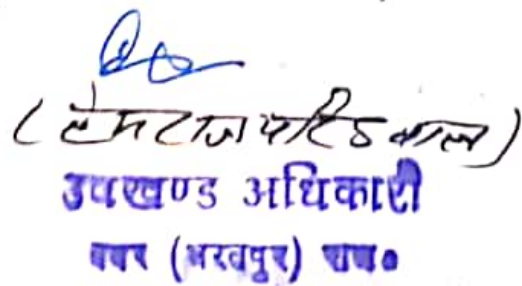 (हेमराज परिडवाल)
उपखण्ड अधिकारी
बयाना (भरतपुर) राज०